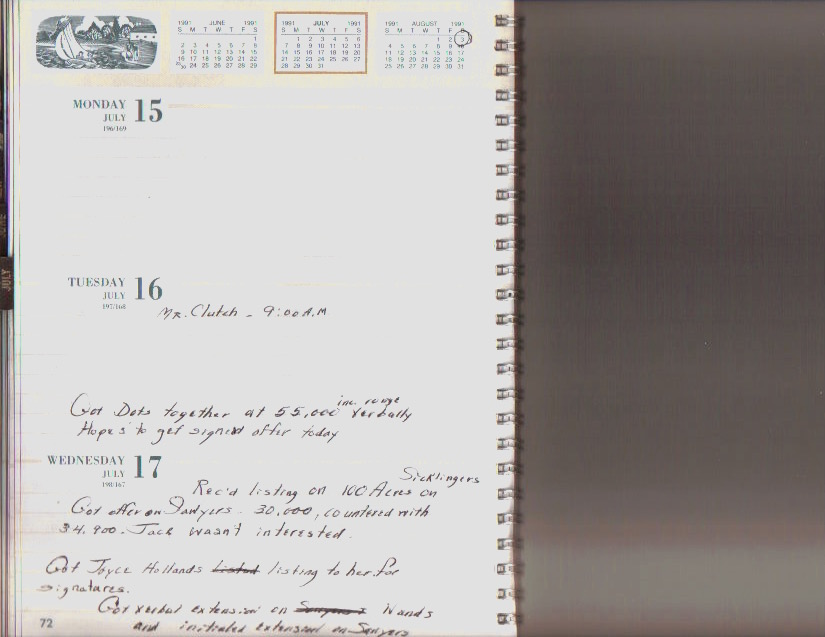 1991 JUNE 1991
S M T W T F S
1
2 3 4 5 6 7 8
9 10 11 12 13 14 15
16 17 18 19 20 21 22
23/30 24 25 26 27 28 29
1991 JULY 1991
S M T W T F S
1 2 3 4 5 6
7 8 9 10 11 12 13
14 15 16 17 18 19 20
21 22 23 24 25 26 27
28 29 30 31
1991 AUGUST 1991
S M T W T F S
1 2 3
4 5 6 7 8 9 10
11 12 13 14 15 16 17
18 19 20 21 22 23 24
25 26 27 28 29 30 31
MONDAY 15
JULY
196/169
TUESDAY 16
JULY
197/168
Mr. Clutch - 9:00 A.M
inc. range
Got Dots together at 55,000 verbally
Hope's to get signed offer today
WEDNESDAY 17
JULY
198/167
Sicklingers
Rec'd listing on 100 Acres on
Got offer on Sawyers. 30,000, countered with
34,900. Jack wasn't interested.
Got Joyce Hollands listed listing to her for
signatures.
Got verbal extension on Sawyers Wands
and initialed extension on Sawyers
72
JUNE
JULY